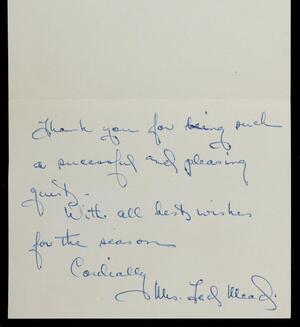 Thank you for being such
a successful and pleasing
guest.
With all best wishes
for the season
Cordially
Mrs. Ted Mead.